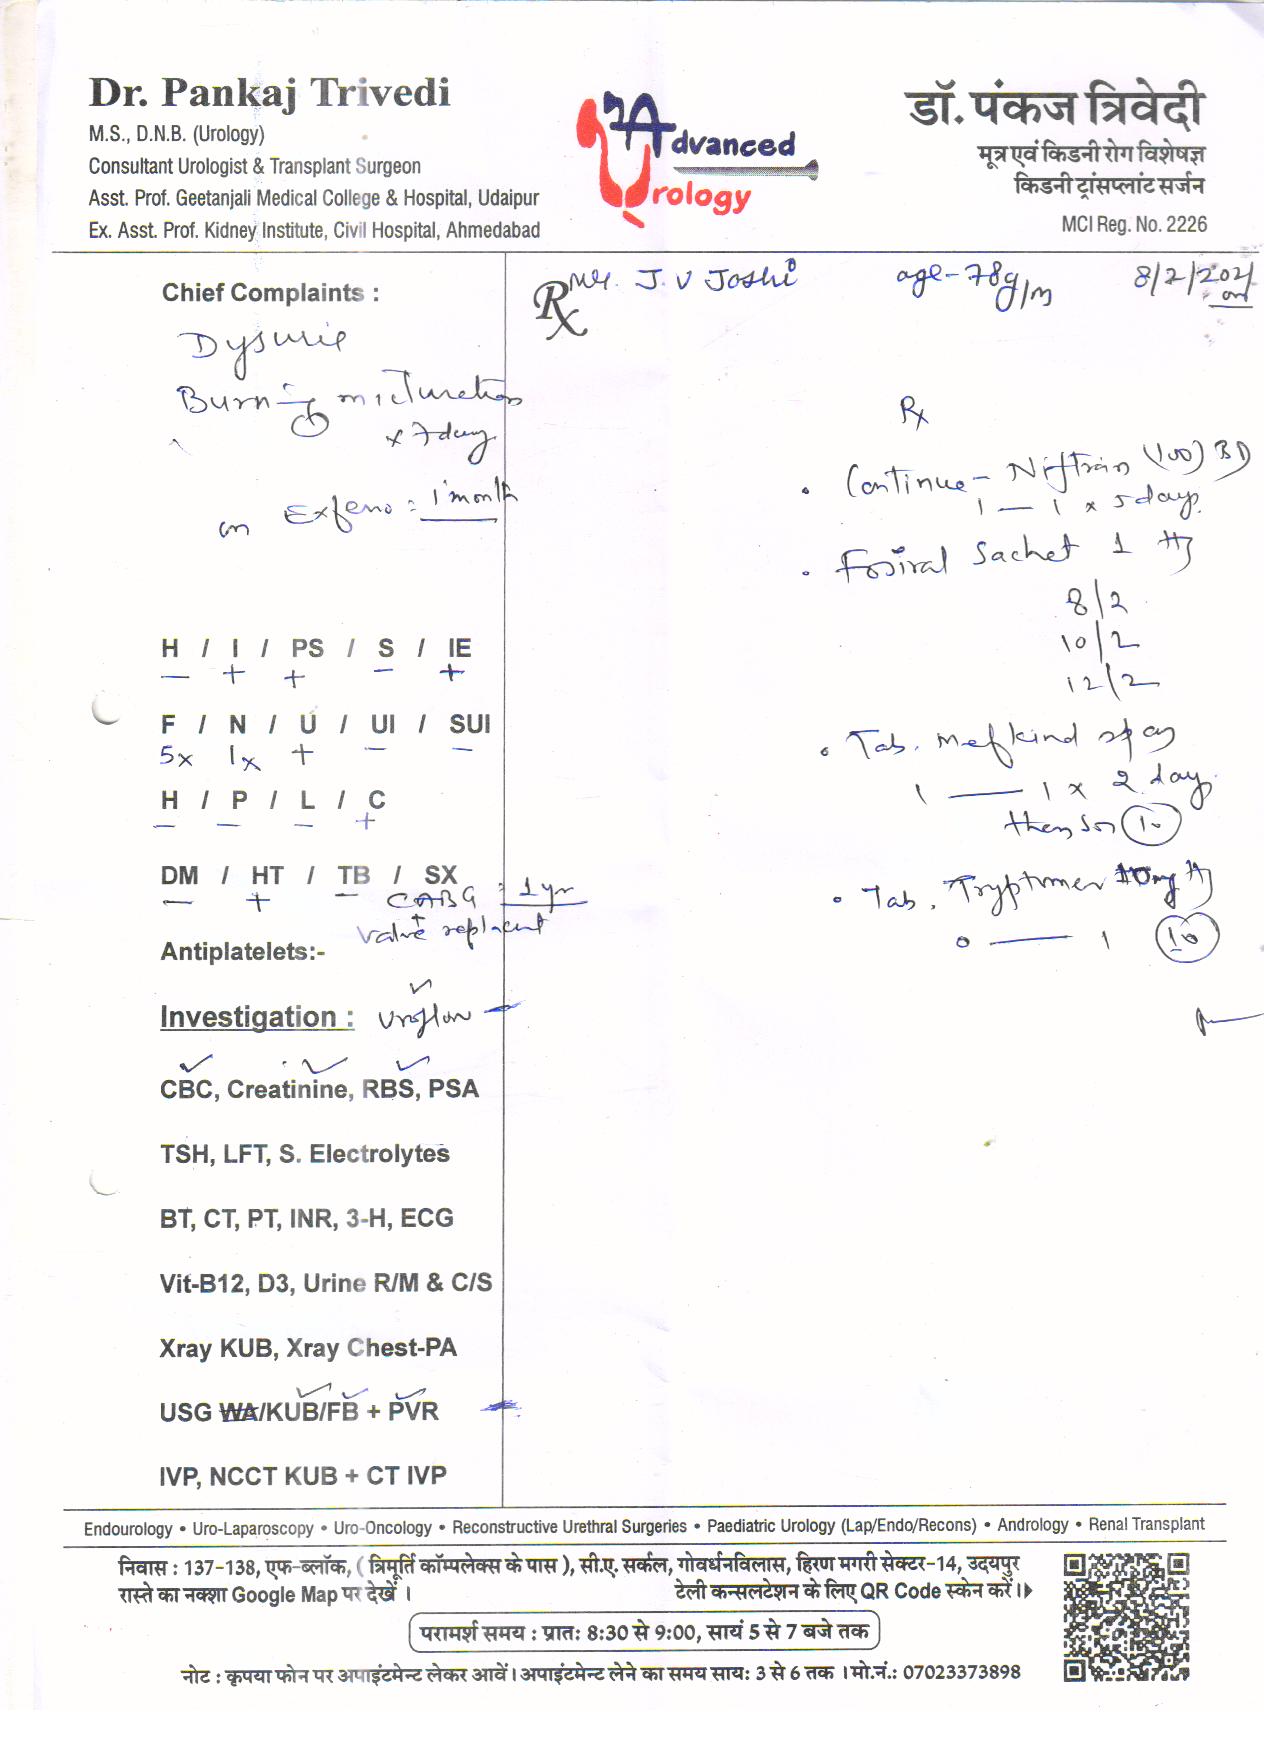 Dr. Pankaj Trivedi
M.S., D.N.B. (Urology)
Consultant Urologist & Transplant Surgeon
Asst. Prof. Geetanjali Medical College & Hospital, Udaipur
Ex. Asst. Prof. Kidney Institute, Civil Hospital, Ahmedabad
Advanced
Urology
डॉ. पंकज त्रिवेदी
मूत्र एवं किडनी रोग विशेषज्ञ
किडनी ट्रांसप्लांट सर्जन
MCI Reg. No. 2226
Rx Mr. J. V Joshi age-78y/m 8/2/2021
Chief Complaints :
Dysuria
Burning micturction
x 7day
on Exfeno : 1 month
H / I / PS / S / IE
— + + — +
F / N / U / UI / SUI
5x 1x + — —
H / P / L / C
— — — +
DM / HT / TB / SX
— + — CABG : 1 yr
+
Valve replacent
Antiplatelets:-
Investigation : Uroflow
CBC, Creatinine, RBS, PSA
TSH, LFT, S. Electrolytes
BT, CT, PT, INR, 3-H, ECG
Vit-B12, D3, Urine R/M & C/S
Xray KUB, Xray Chest-PA
USG WA/KUB/FB + PVR
IVP, NCCT KUB + CT IVP
Rx
• Continue - Niftran (100) BD
1 — 1 x 5 day.
• Fosiral Sachet 1 HS
8/2
10/2
12/2
• Tab. Mefkind spas
1 — 1 x 2 day.
then SOS (10)
• Tab. Tryptomer 10mg HS
0 — 1 (10)
Endourology • Uro-Laparoscopy • Uro-Oncology • Reconstructive Urethral Surgeries • Paediatric Urology (Lap/Endo/Recons) • Andrology • Renal Transplant
निवास : 137-138, एफ-ब्लॉक, ( त्रिमूर्ति कॉम्पलेक्स के पास ), सी.ए. सर्कल, गोवर्धनविलास, हिरण मगरी सेक्टर-14, उदयपुर
रास्ते का नक्शा Google Map पर देखें । टेली कन्सलटेशन के लिए QR Code स्केन करें।
परामर्श समय : प्रातः 8:30 से 9:00, सायं 5 से 7 बजे तक
नोट : कृपया फोन पर अपाइंटमेन्ट लेकर आवें। अपाइंटमेन्ट लेने का समय सायः 3 से 6 तक । मो.नं.: 07023373898